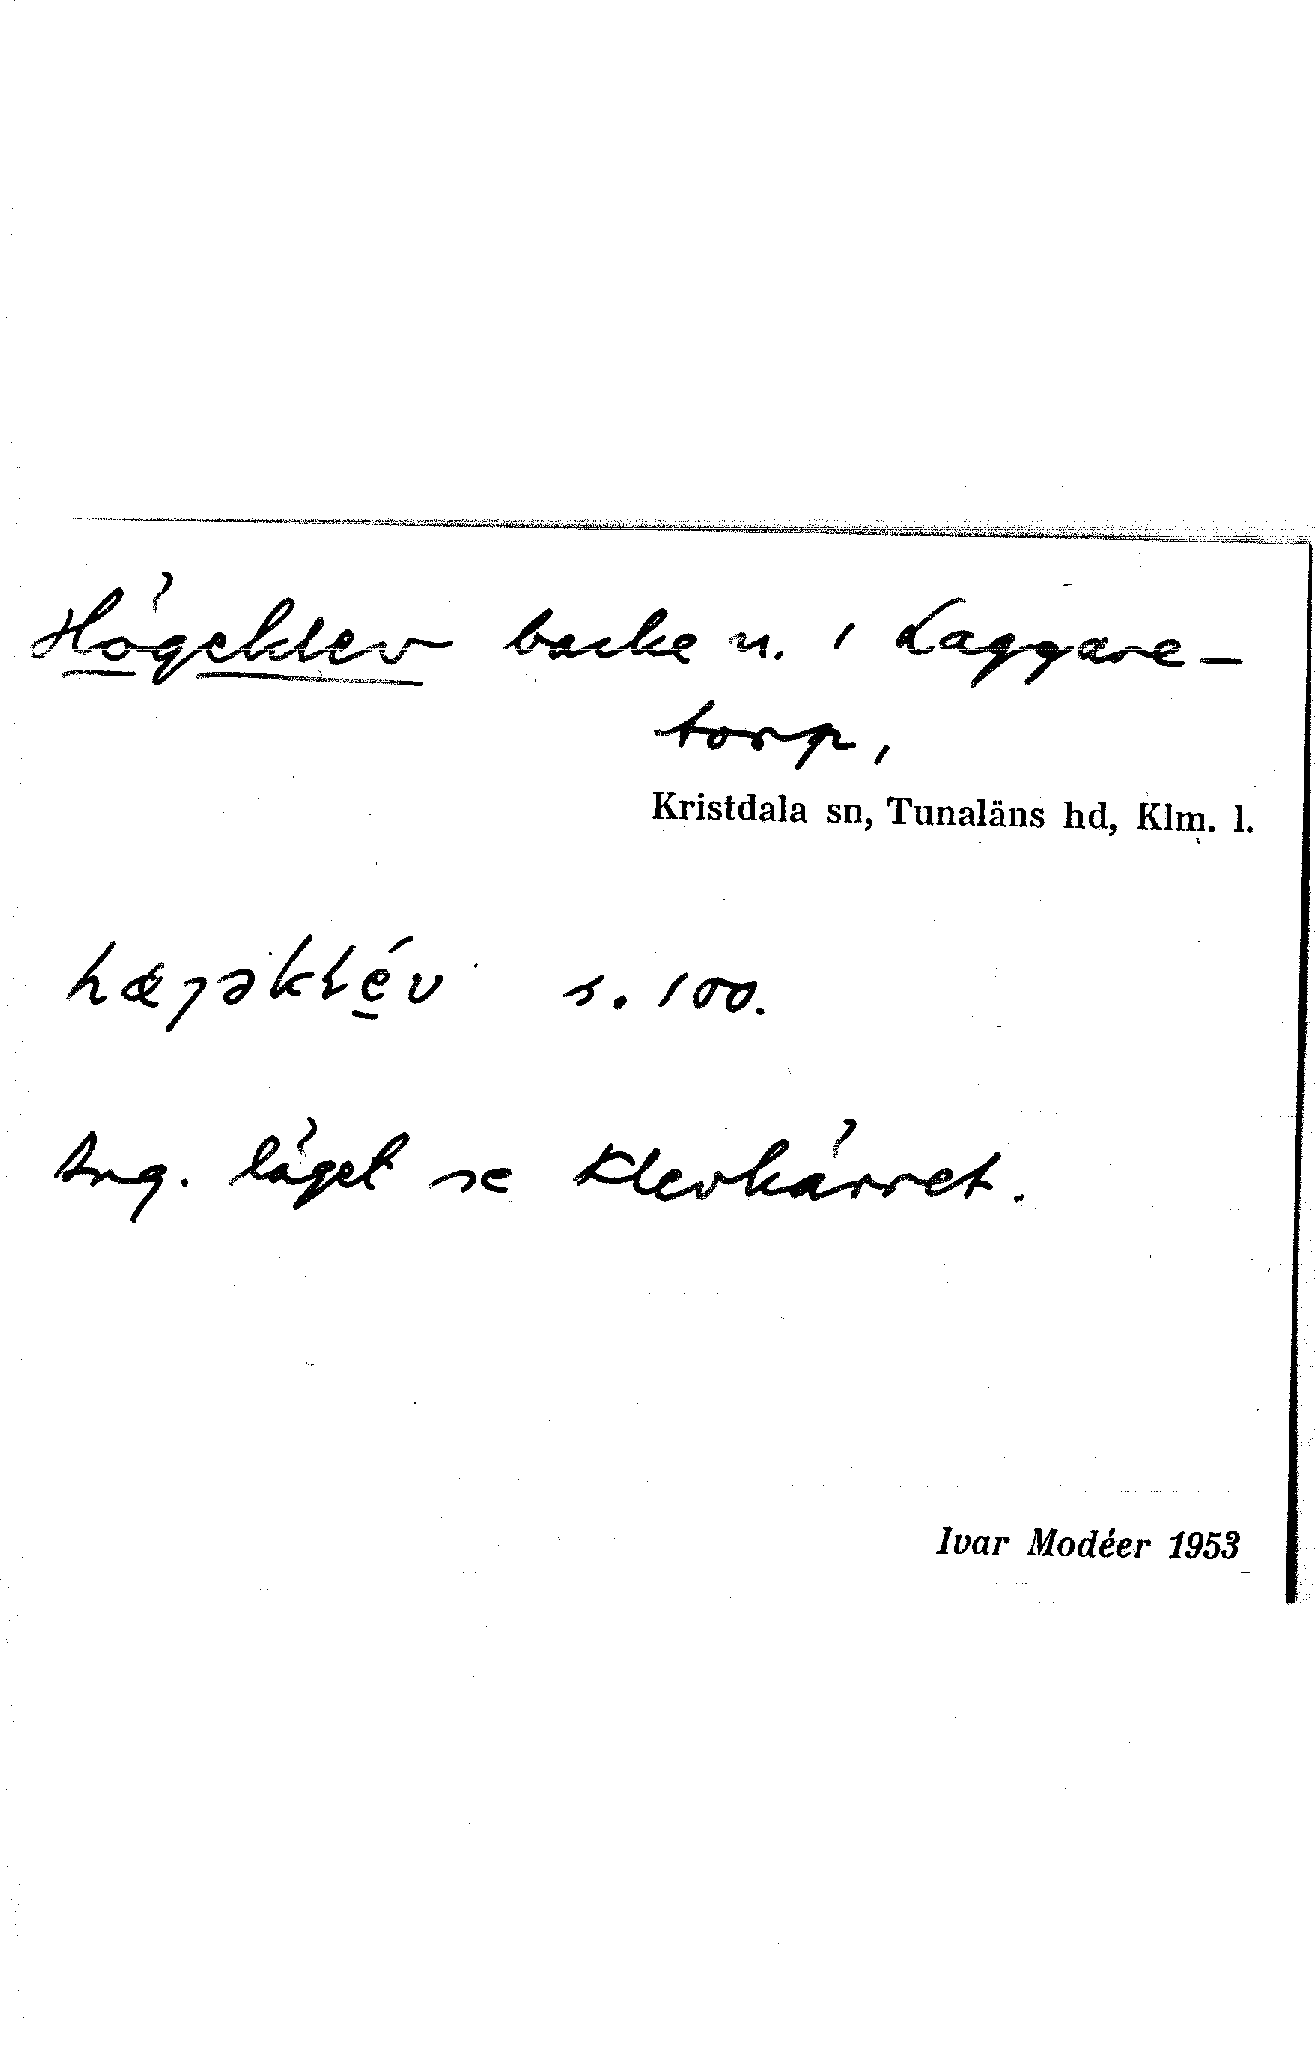 Högeklev backe n. i Laggare-
torp,
Kristdala sn, Tunaläns hd, Klm. l.
hœȷəklév s. 100.
Ang. läget se Klevkärret.
Ivar Modéer 1953